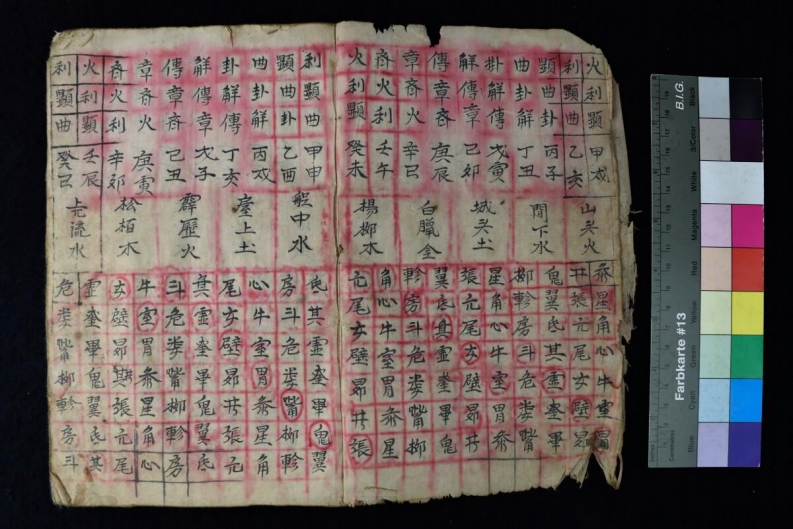 火利顯甲戌
利顯曲乙亥
顯曲卦丙子
曲卦解丁丑
卦解傳戊寅
解傳章己卯
傳章斉庚辰
章斉火辛巳
斉火利壬午
火利顯癸未
山头火
間下水
城头土
白臘金
楊柳木
参星角心牛室胃
井張亢尾女壁昴
鬼翼氐其虛奎畢
柳軫房斗危娄觜
星角心牛室胃参
張亢尾女壁昴井
翼氐其虛奎畢鬼
軫房斗危娄觜柳
角心牛室胃参星
亢尾女壁昴井張
利顯曲甲申
顯曲卦乙酉
曲卦解丙戌
卦解傳丁亥
解傳章戊子
傳章斉己丑
章斉火庚寅
斉火利辛卯
火利顯壬辰
利顯曲癸巳
船中水
臺上土
霹歷火
松柏木
流水
氐其虛奎畢鬼翼
房斗危娄觜柳軫
心牛室胃参星角
尾女壁昴井張亢
其虛奎畢鬼翼氐
斗危娄觜柳軫房
牛室胃参星角心
女壁昴井張亢尾
虛奎畢鬼翼氐其
危娄觜柳軫房斗
B.I.G.
Farbkarte #13
Blue
Cyan
Green
Yellow
Red
Magenta
White
3/Color
Black
Centimetres